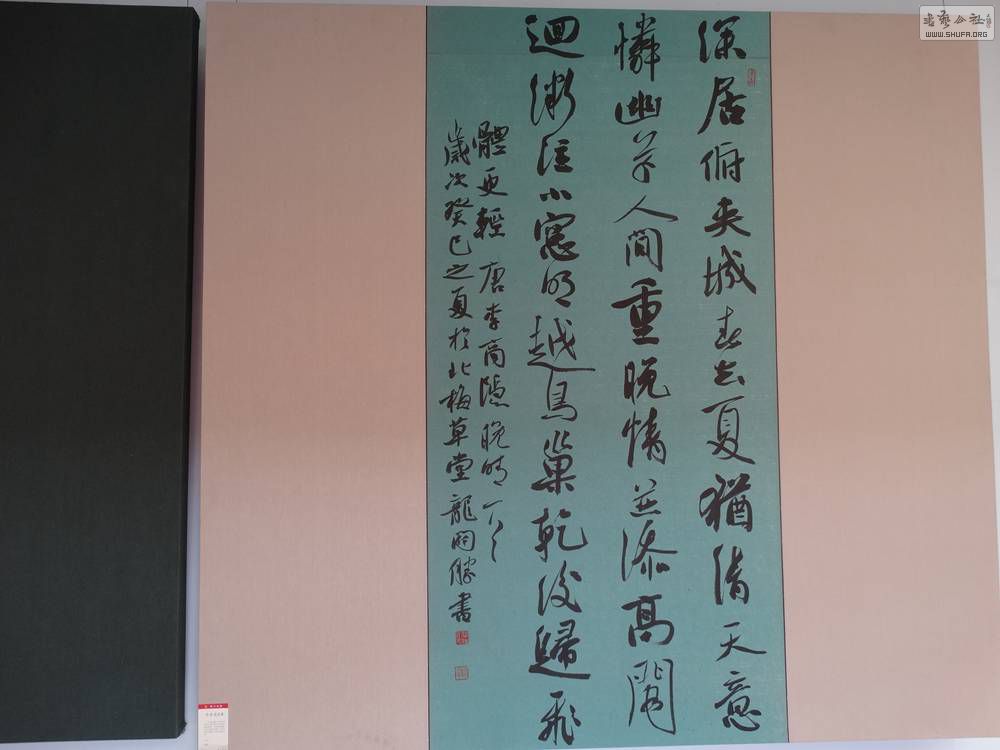 深居俯夾城春去夏猶清天意
憐幽草人間重晚情並添高閣
迴微注小窓明越鳥巢乾後歸飛
體更輕 唐李商隱晚晴一首
歲次癸巳之夏於北梅草堂龍開勝書
书艺公社
WWW.SHUFA.ORG